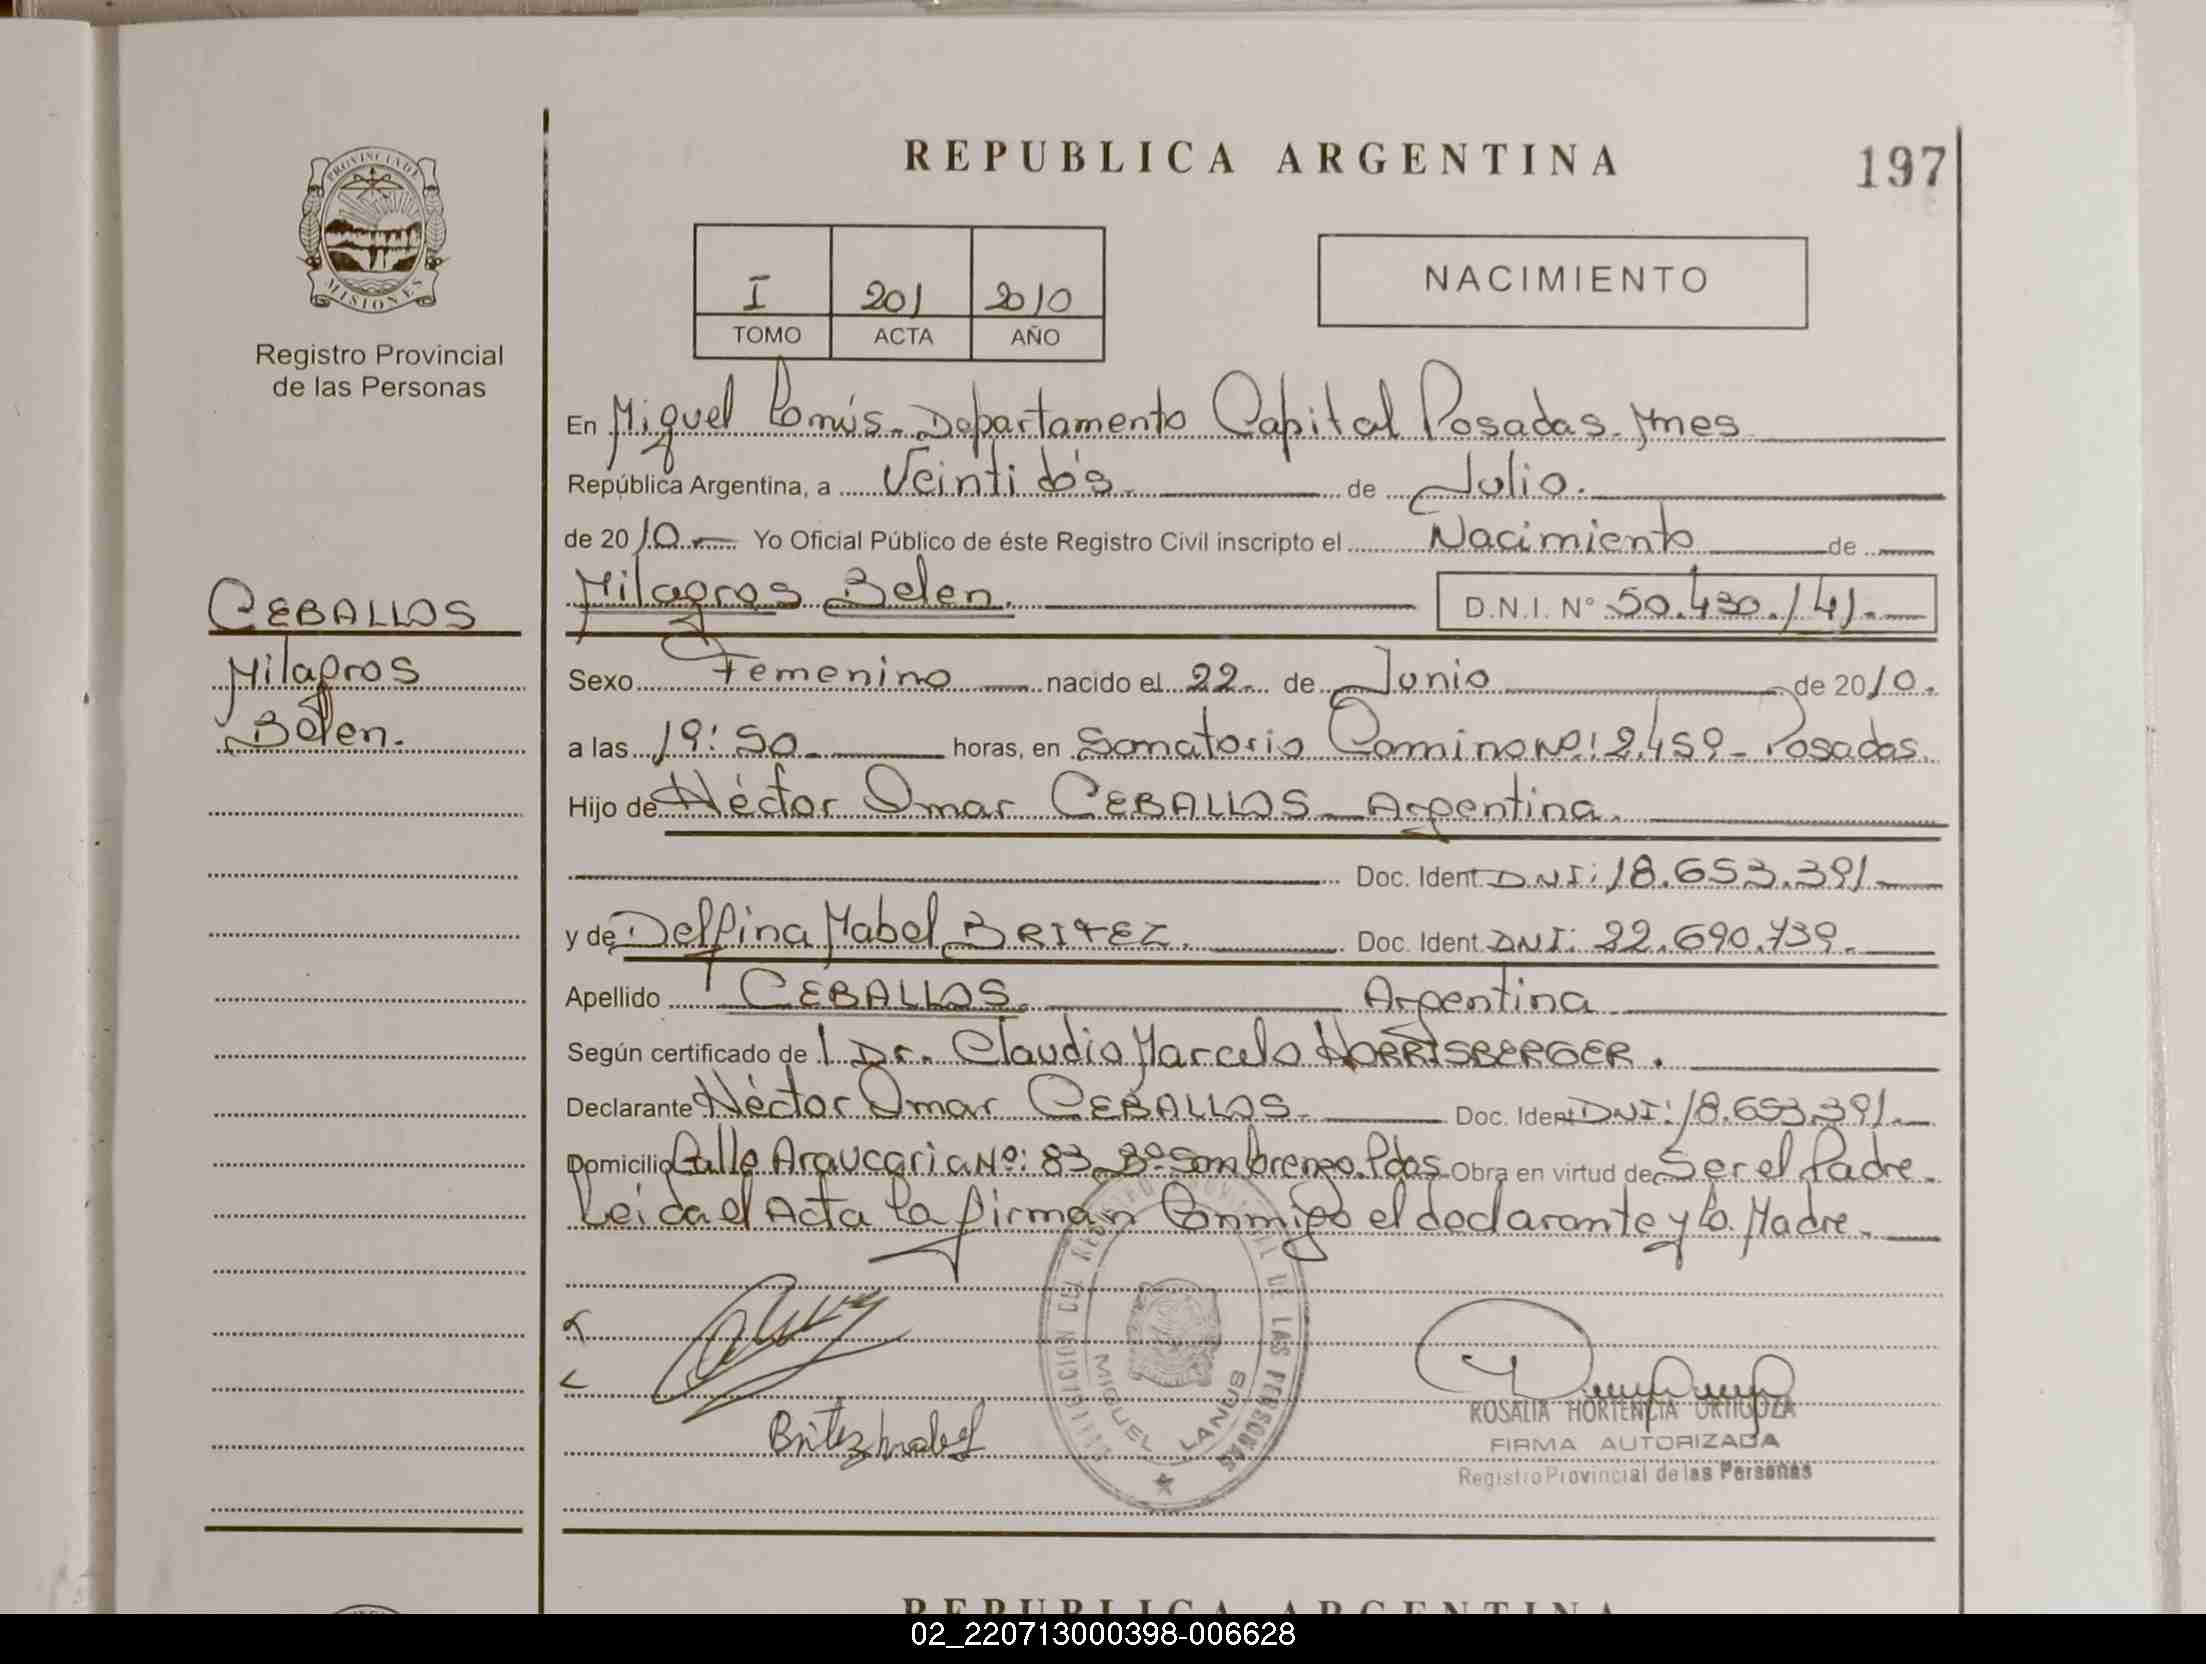 REPUBLICA ARGENTINA
197
PROVINCIA DE
MISIONES
Registro Provincial
de las Personas
I 201 2010
TOMO ACTA AÑO
NACIMIENTO
En Miguel Lanús - Departamento Capital Posadas - Mnes
República Argentina, a Veintidós de Julio.
de 2010 Yo Oficial Público de éste Registro Civil inscripto el Nacimiento de
Milagros Belen. D.N.I. N° 50.430.141.-
CEBALLOS
Milagros
Belen.
Sexo Femenino nacido el 22 de Junio de 2010.
a las 19:50 horas, en Sanatorio Camino Nº: 2.459 - Posadas.
Hijo de Héctor Omar CEBALLOS - Argentina.
Doc. Ident. DNI: 18.653.391.-
y de Delfina Mabel BRITEZ. Doc. Ident. DNI: 22.690.739.-
Apellido CEBALLOS. Argentina
Según certificado de l Dr. Claudio Marcelo HORRISBERGER.
Declarante Héctor Omar CEBALLOS. Doc. Ident. DNI: 18.653.391.-
Domicilio Calle Araucaria Nº: 83 Bº San Lorenzo. Pdas Obra en virtud de Ser el Padre.
Leida el Acta la firman Conmigo el declarante y la Madre.
Britez Mabel
MIGUEL LANUS
ROSALIA HORTENCIA ORTIGOZA
FIRMA AUTORIZADA
Registro Provincial de las Personas
REPUBLICA ARGENTINA
02_220713000398-006628